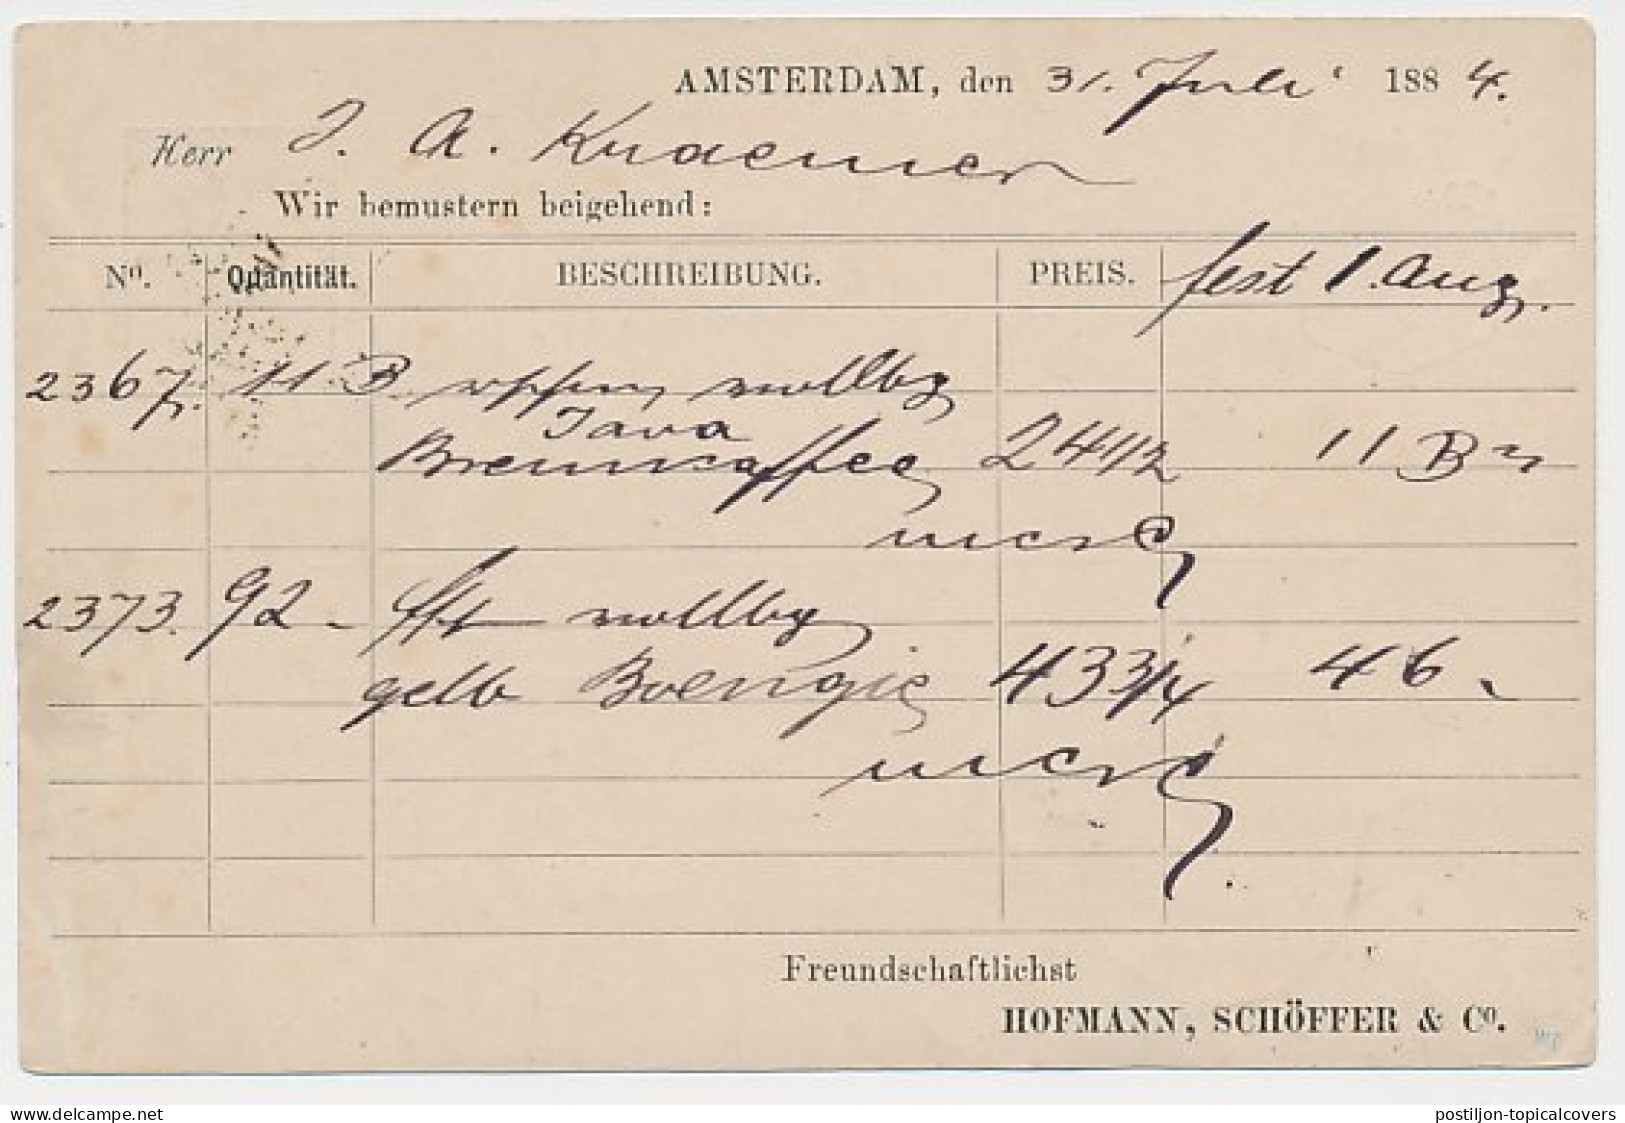 AMSTERDAM, den 31. Juli 1884.
Herr J. A. Kraemer
Wir bemustern beigehend:
Nº. Quantität. BESCHREIBUNG. PREIS. fest 1. Aug.
2367. 11 B.
Java
24 1/2 11 B
2373. 92
gelb 43 3/4 46
Freundschaftlichst
HOFMANN, SCHÖFFER & Cº.
delcampe.net
postiljon-topicalcovers